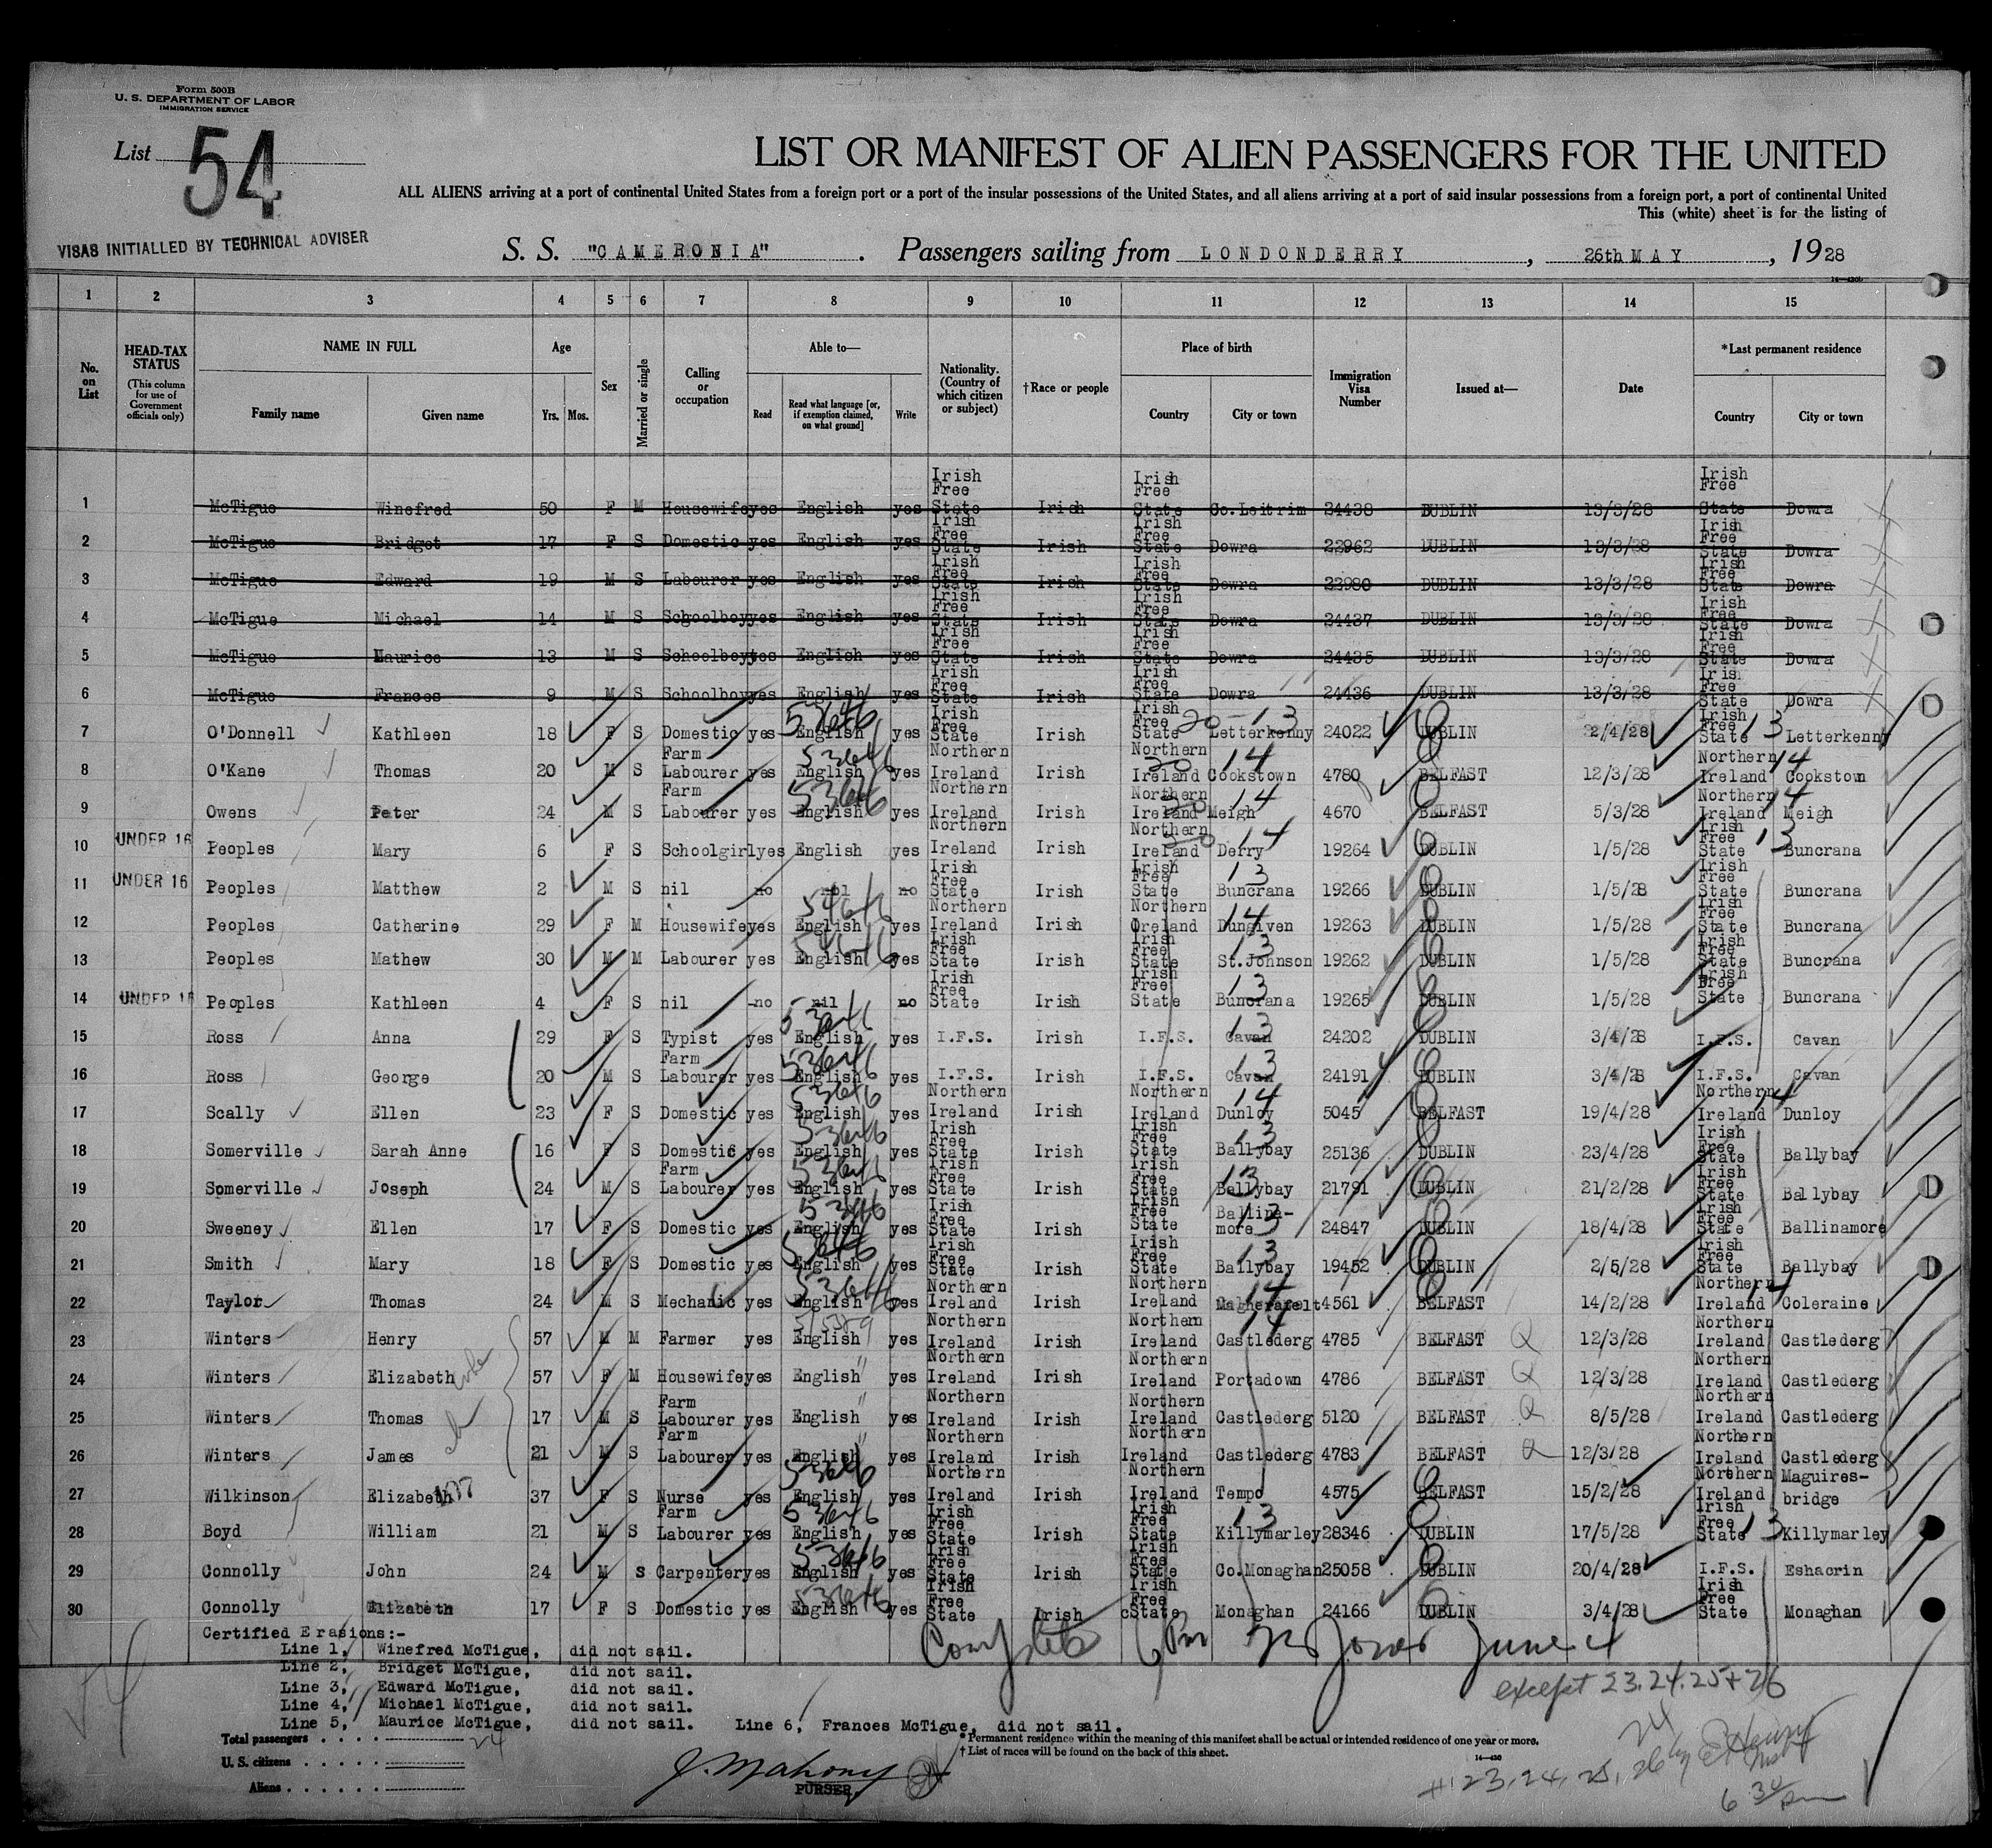 Form 500B
U. S. DEPARTMENT OF LABOR
IMMIGRATION SERVICE
List 54
LIST OR MANIFEST OF ALIEN PASSENGERS FOR THE UNITED
ALL ALIENS arriving at a port of continental United States from a foreign port or a port of the insular possessions of the United States, and all aliens arriving at a port of said insular possessions from a foreign port, a port of continental United
This (white) sheet is for the listing of
VISAS INITIALLED BY TECHNICAL ADVISER
S. S. "CAMERONIA". Passengers sailing from LONDONDERRY, 26th MAY, 1928
1 2 3 4 5 6 7 8 9 10 11 12 13 14 15
No. on List
HEAD-TAX STATUS (This column for use of Government officials only)
NAME IN FULL
Family name Given name
Age
Yrs. Mos.
Sex
Married or single
Calling or occupation
Able to—
Read Read what language [or, if exemption claimed, on what ground] Write
Nationality. (Country of which citizen or subject)
†Race or people
Place of birth
Country City or town
Immigration Visa Number
Issued at—
Date
*Last permanent residence
Country City or town
1 McTigue Winefred 50 F M Housewife yes English yes Irish Free State Irish Irish Free State Co.Leitrim 24438 DUBLIN 13/3/28 Irish Free State Dowra
2 McTigue Bridget 17 F S Domestic yes English yes Irish Free State Irish Irish Free State Dowra 22962 DUBLIN 13/3/28 Irish Free State Dowra
3 McTigue Edward 19 M S Labourer yes English yes Irish Free State Irish Irish Free State Dowra 23980 DUBLIN 13/3/28 Irish Free State Dowra
4 McTigue Michael 14 M S Schoolboy yes English yes Irish Free State Irish Irish Free State Dowra 24437 DUBLIN 13/3/28 Irish Free State Dowra
5 McTigue Maurice 13 M S Schoolboy yes English yes Irish Free State Irish Irish Free State Dowra 24435 DUBLIN 13/3/28 Irish Free State Dowra
6 McTigue Frances 9 M S Schoolboy yes English yes Irish Free State Irish Irish Free State Dowra 24436 DUBLIN 13/3/28 Irish Free State Dowra
7 O'Donnell Kathleen 18 F S Domestic yes English yes Irish Free State Irish Irish Free State Letterkenny 24022 DUBLIN 2/4/28 Irish Free State Letterkenny
8 O'Kane Thomas 20 M S Farm Labourer yes English yes Northern Ireland Irish Northern Ireland Cookstown 4780 BELFAST 12/3/28 Northern Ireland Cookstown
9 Owens Peter 24 M S Farm Labourer yes English yes Northern Ireland Irish Northern Ireland Meigh 4670 BELFAST 5/3/28 Northern Ireland Meigh
10 UNDER 16 Peoples Mary 6 F S Schoolgirl yes English yes Northern Ireland Irish Northern Ireland Derry 19264 DUBLIN 1/5/28 Irish Free State Buncrana
11 UNDER 16 Peoples Matthew 2 M S nil no nil no Irish Free State Irish Irish Free State Buncrana 19266 DUBLIN 1/5/28 Irish Free State Buncrana
12 Peoples Catherine 29 F M Housewife yes English yes Northern Ireland Irish Northern Oreland Dungiven 19263 DUBLIN 1/5/28 Irish Free State Buncrana
13 Peoples Mathew 30 M M Labourer yes English yes Irish Free State Irish Irish Free State St.Johnson 19262 DUBLIN 1/5/28 Irish Free State Buncrana
14 UNDER 16 Peoples Kathleen 4 F S nil no nil no Irish Free State Irish Irish Free State Buncrana 19265 DUBLIN 1/5/28 Irish Free State Buncrana
15 Ross Anna 29 F S Typist yes English yes I.F.S. Irish I.F.S. Cavan 24202 DUBLIN 3/4/28 I.F.S. Cavan
16 Ross George 20 M S Farm Labourer yes English yes I.F.S. Irish I.F.S. Cavan 24191 DUBLIN 3/4/28 I.F.S. Cavan
17 Scally Ellen 23 F S Domestic yes English yes Northern Ireland Irish Northern Ireland Dunloy 5045 BELFAST 19/4/28 Northern Ireland Dunloy
18 Somerville Sarah Anne 16 F S Domestic yes English yes Irish Free State Irish Irish Free State Ballybay 25136 DUBLIN 23/4/28 Irish Free State Ballybay
19 Somerville Joseph 24 M S Farm Labourer yes English yes Irish Free State Irish Irish Free State Ballybay 21791 DUBLIN 21/2/28 Irish Free State Ballybay
20 Sweeney Ellen 17 F S Domestic yes English yes Irish Free State Irish Irish Free State Ballina-more 24847 DUBLIN 18/4/28 Irish Free State Ballinamore
21 Smith Mary 18 F S Domestic yes English yes Irish Free State Irish Irish Free State Ballybay 19452 DUBLIN 2/5/28 Irish Free State Ballybay
22 Taylor Thomas 24 M S Mechanic yes English yes Northern Ireland Irish Northern Ireland Magherafelt 4561 BELFAST 14/2/28 Northern Ireland Coleraine
23 Winters Henry 57 M M Farmer yes English yes Northern Ireland Irish Northern Ireland Castlederg 4785 BELFAST 12/3/28 Northern Ireland Castlederg
24 Winters Elizabeth 57 F M Housewife yes English yes Northern Ireland Irish Northern Ireland Portadown 4786 BELFAST 12/3/28 Northern Ireland Castlederg
25 Winters Thomas 17 M S Farm Labourer yes English yes Northern Ireland Irish Northern Ireland Castlederg 5120 BELFAST 8/5/28 Northern Ireland Castlederg
26 Winters James 21 M S Farm Labourer yes English yes Northern Ireland Irish Northern Ireland Castlederg 4783 BELFAST 12/3/28 Northern Ireland Castlederg
27 Wilkinson Elizabeth 37 F S Nurse yes English yes Northern Ireland Irish Northern Ireland Tempo 4575 BELFAST 15/2/28 Northern Ireland Maguires-bridge
28 Boyd William 21 M S Farm Labourer yes English yes Irish Free State Irish Irish Free State Killymarley 28346 DUBLIN 17/5/28 Irish Free State Killymarley
29 Connolly John 24 M s Carpenter yes English yes Irish Free State Irish Irish Free State Co.Monaghan 25058 DUBLIN 20/4/28 I.F.S. Eshacrin
30 Connolly Elizabeth 17 F S Domestic yes English yes Irish Free State Irish Irish Free State Monaghan 24166 DUBLIN 3/4/28 Irish Free State Monaghan
Certified Erasions:-
Line 1, Winefred McTigue, did not sail.
Line 2, Bridget McTigue, did not sail.
Line 3, Edward McTigue, did not sail.
Line 4, Michael McTigue, did not sail.
Line 5, Maurice McTigue, did not sail. Line 6, Frances McTigue, did not sail.
Complete June 4
except 23.24.25+26
Total passengers 24
U. S. citizens
Aliens
* Permanent residence within the meaning of this manifest shall be actual or intended residence of one year or more.
† List of races will be found on the back of this sheet.
J. Mahony
PURSER.
# 23, 24, 25, 26 by
6 30 pm